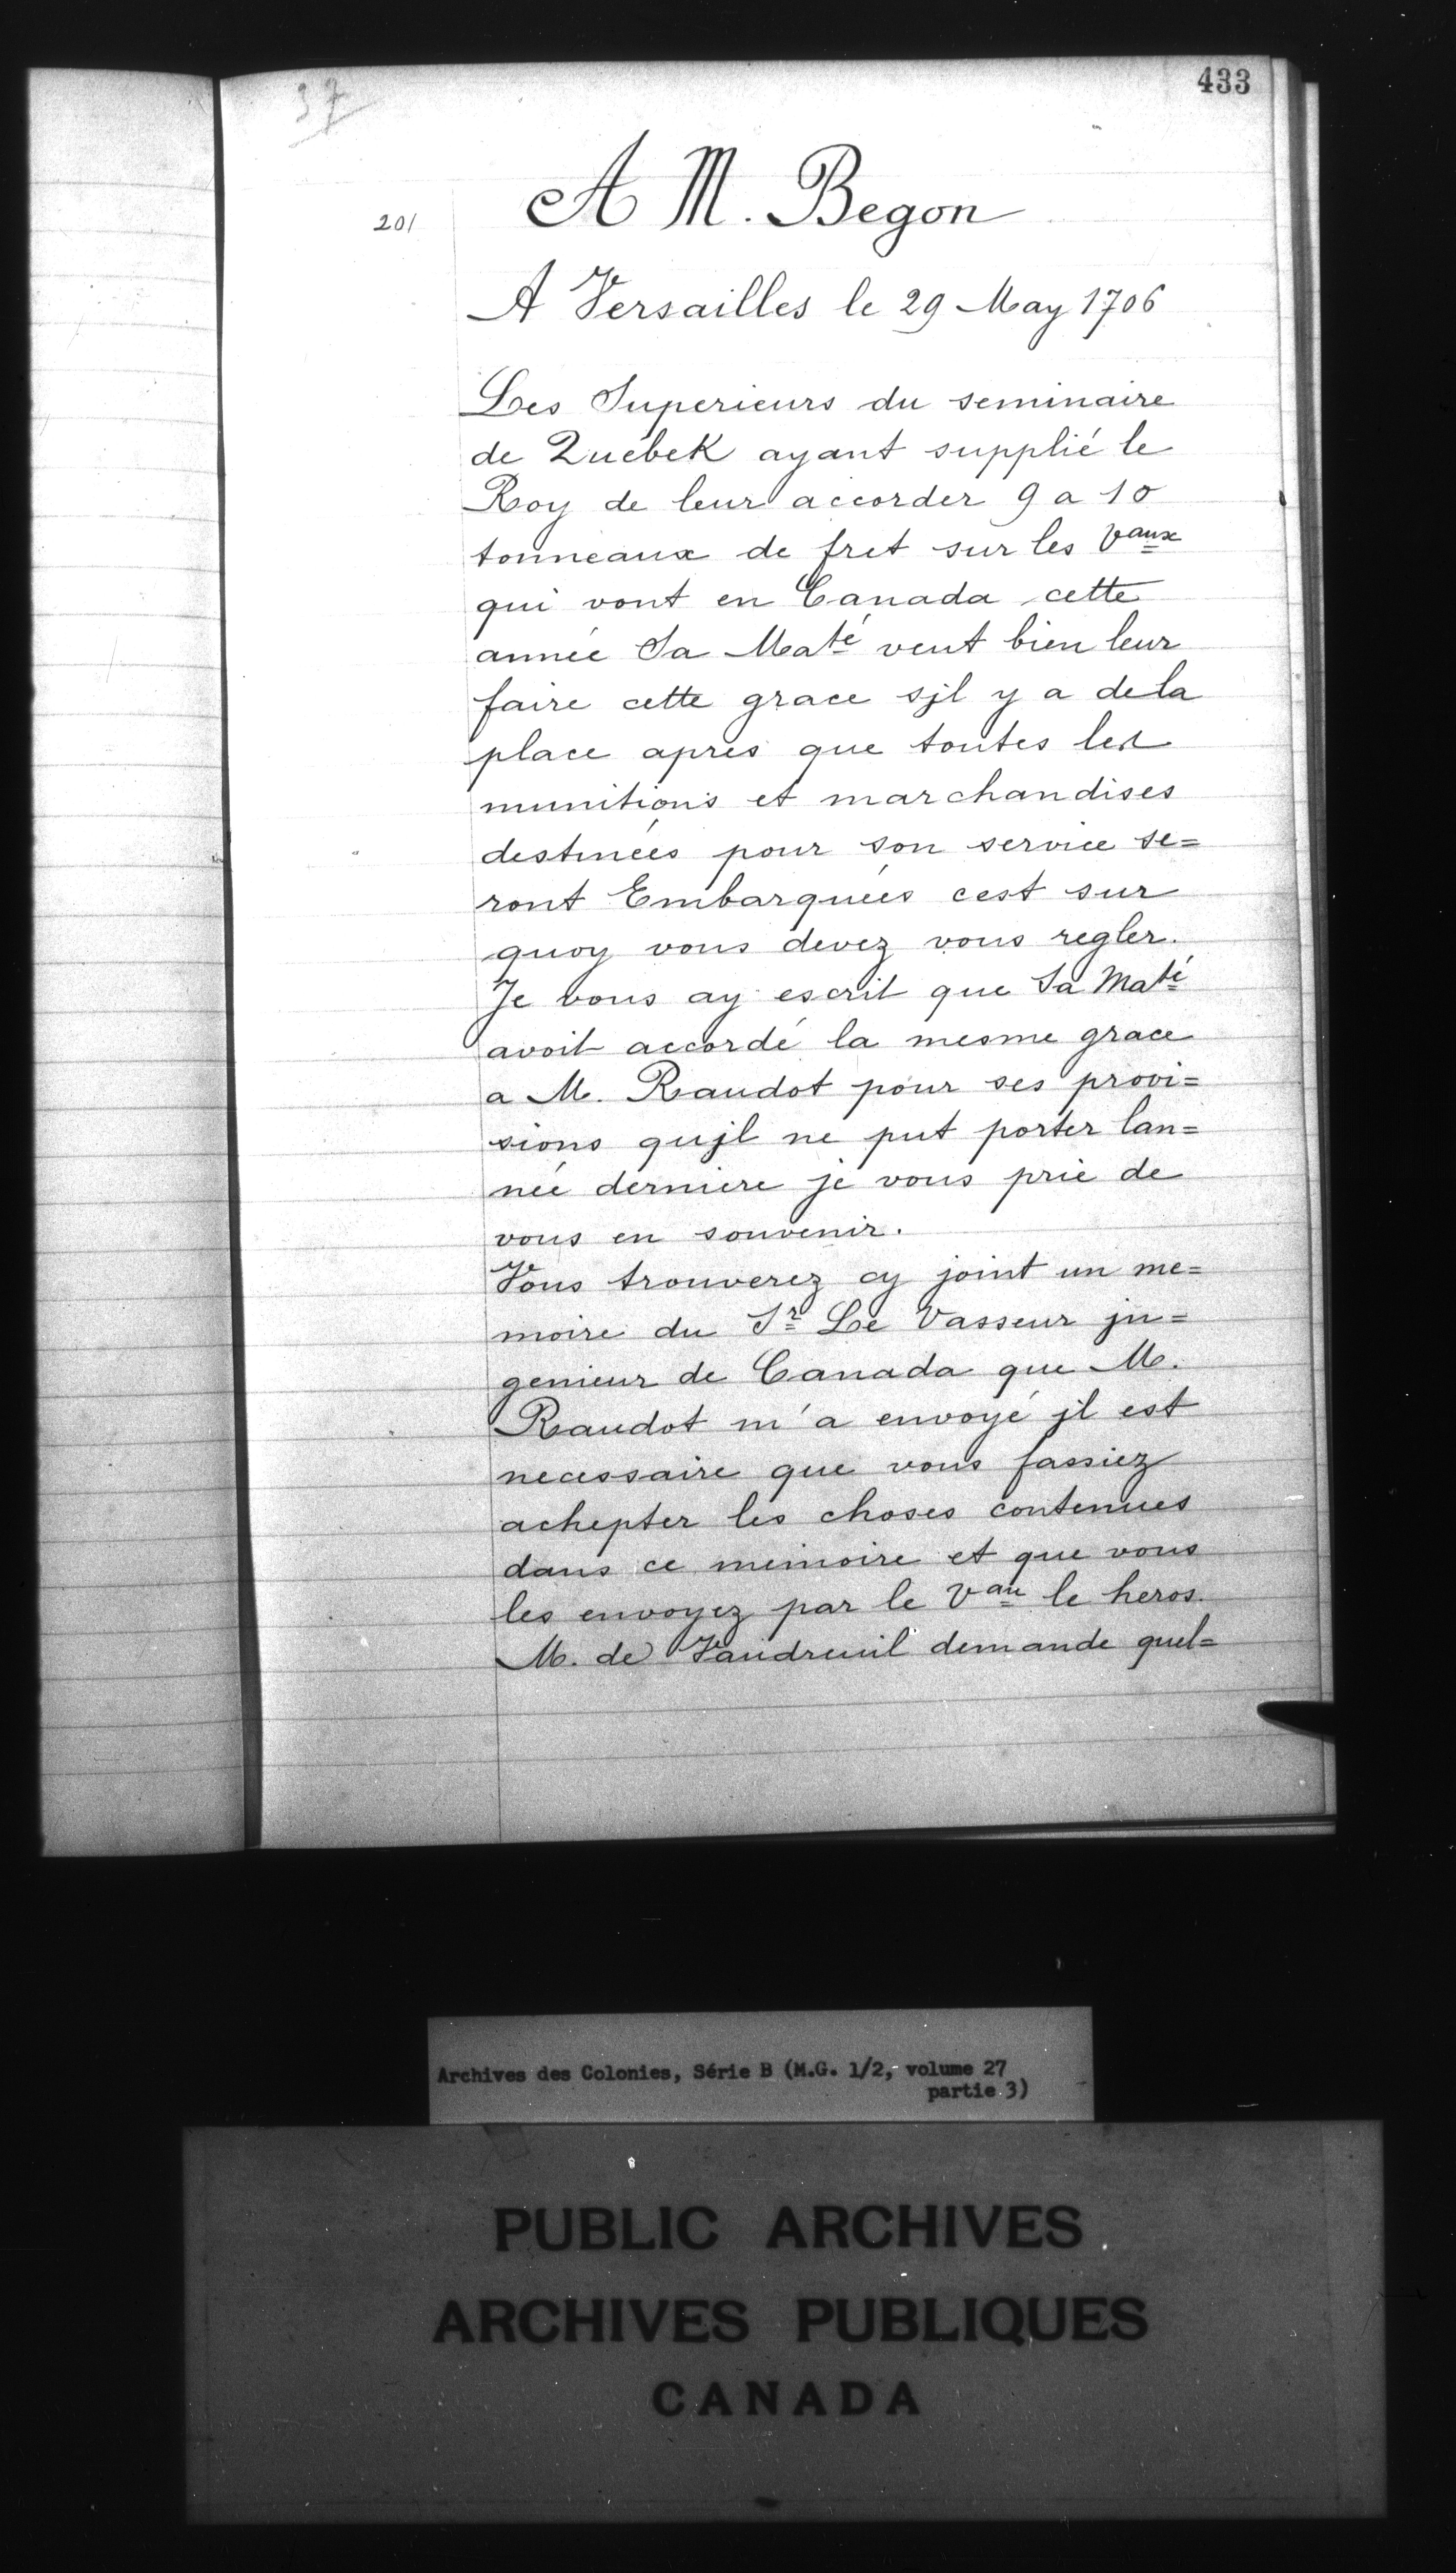 433
37
201
A M. Begon
A Versailles le 29 May 1706
Les Superieurs du seminaire
de Québek ayant supplié le
Roy de leur accorder 9 a 10
tonneaux de fret sur les Vaux
qui vont en Canada cette
année Sa Maté veut bien leur
faire cette grace sjl y a de la
place apres que toutes les
munitions et marchandises
destinées pour son service se=
ront Embarquées cest sur
quoy vous devez vous regler.
Je vous ay escrit que Sa Maté
avoit accordé la mesme grace
a M. Raudot pour ses provi=
sions qujl ne put porter lan=
née derniere je vous prie de
vous en souvenir.
Vous trouverez cy joint un me=
moire du Sr Le Vasseur jn=
genieur de Canada que M.
Raudot m'a envoyé jl est
necessaire que vous fassiez
achepter les choses contenues
dans ce memoire et que vous
les envoyez par le Vau le heros.
M. de Vaudreuil demande quel=
Archives des Colonies, Série B (M.G. 1/2, volume 27
partie 3)
PUBLIC ARCHIVES
ARCHIVES PUBLIQUES
CANADA